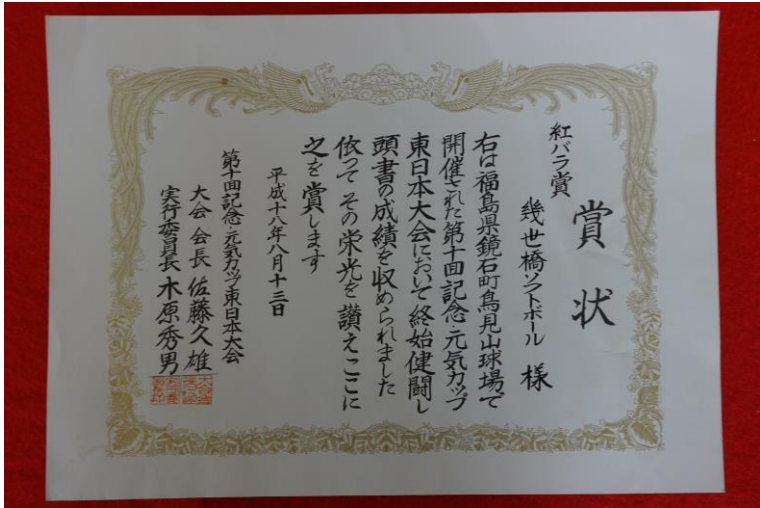 賞状
紅バラ賞
幾世橋ソフトボール 様
右は福島県鏡石町鳥見山球場で
開催された第十回記念・元気カップ
東日本大会において終始健闘し
頭書の成績を収められました
依って その栄光を讃えここに
之を賞します
平成十八年八月十三日
第十回記念・元気カップ東日本大会
大会会長 佐藤久雄
実行委員長 木原秀男